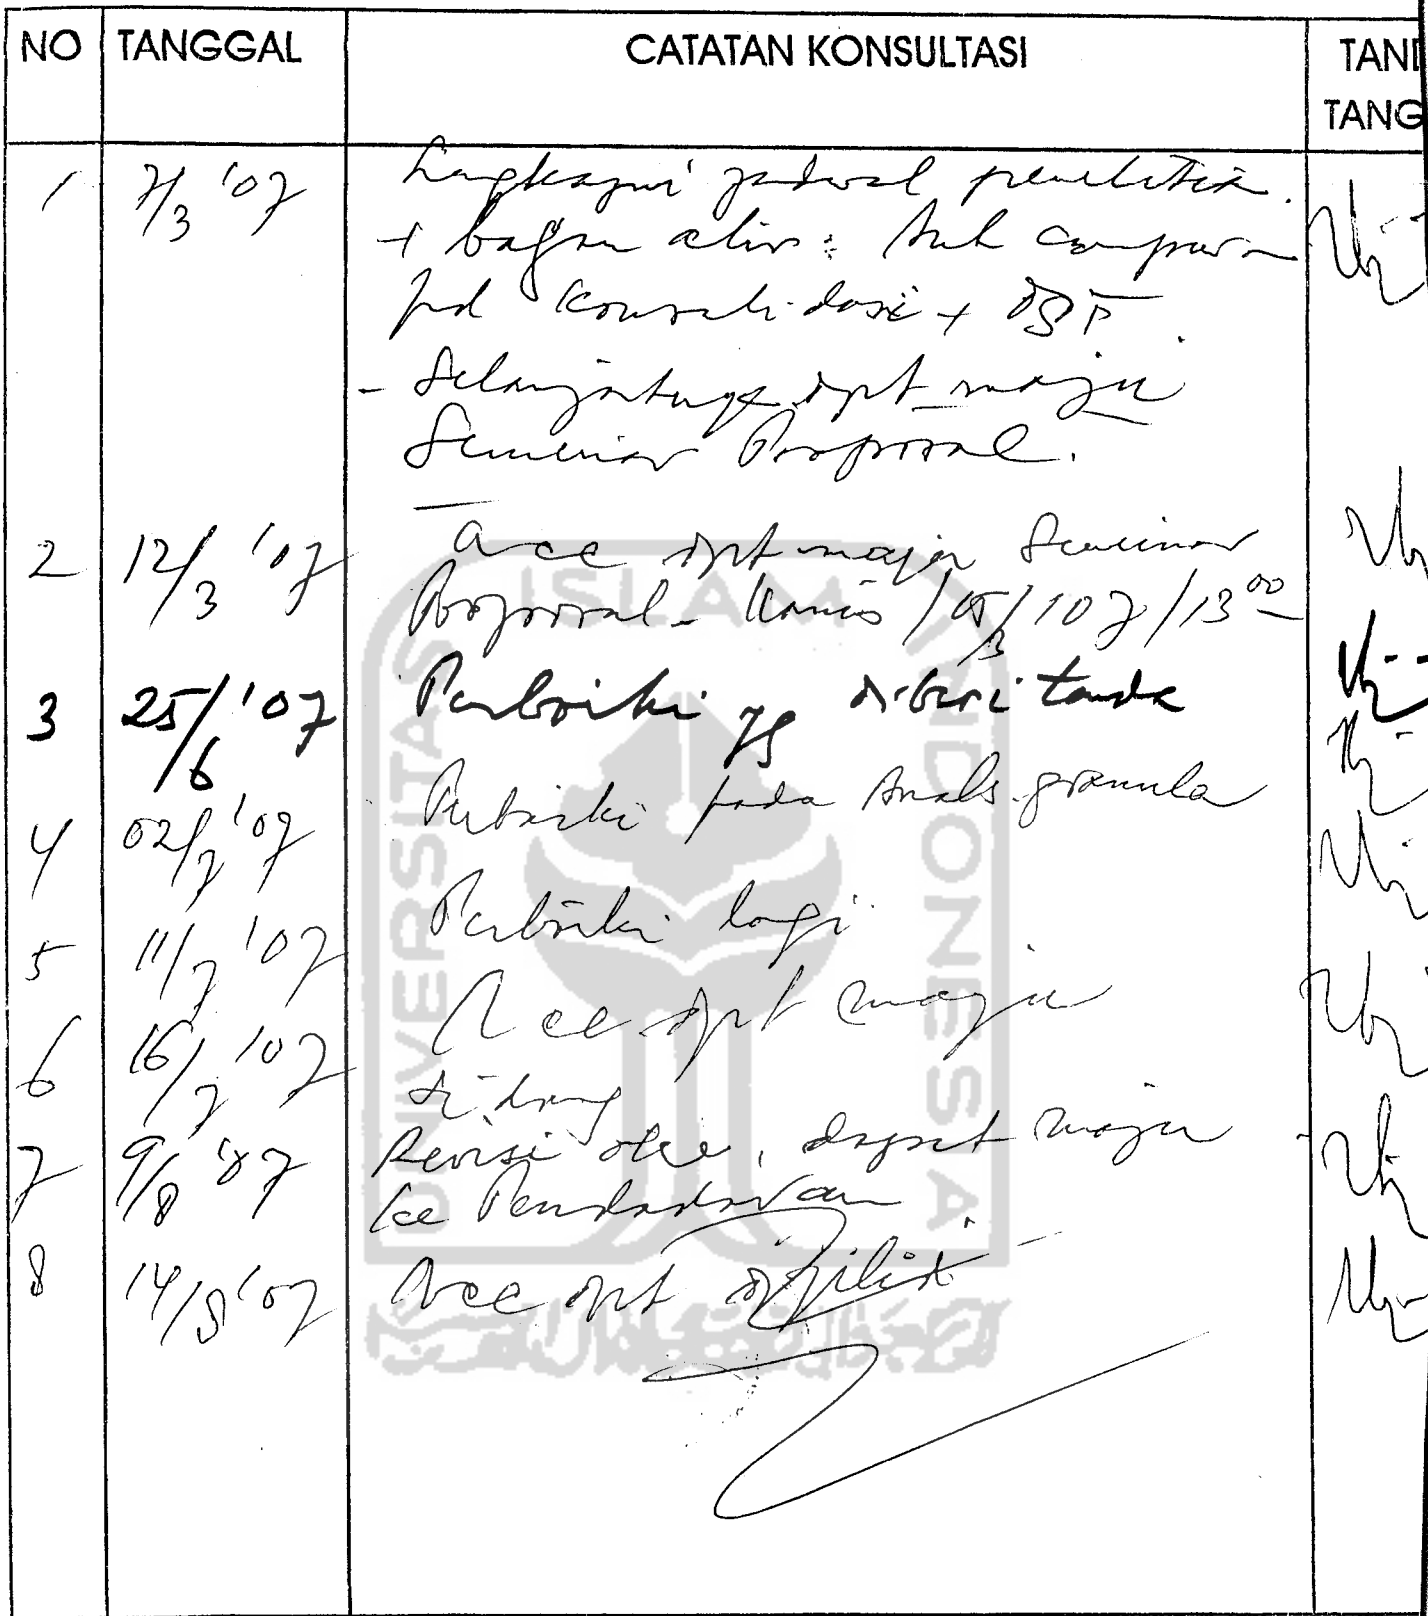 NO TANGGAL CATATAN KONSULTASI TAND
TANG
1 7/3 '07 Lengkapi jadwal penelitian.
+ bagan alir : campuran
pd konsolidasi +
- Selanjutnya dpt maju
Seminar Proposal.
2 12/3 '07 acc dpt maju Seminar
Proposal - Kamis /15/3/07/13.00
3 25/6 '07 Perbaiki yg diberi tanda
4 02/7 '07 Perbaiki pada Anals. granula
5 11/7 '07 Perbaiki lagi
6 16/7 '07 Acc dpt maju
sidang
7 9/8 '07 Revisi oke, dapat maju
ke Pendadaran
8 14/8 '07 Acc dpt dijilid
UNIVERSITAS ISLAM INDONESIA